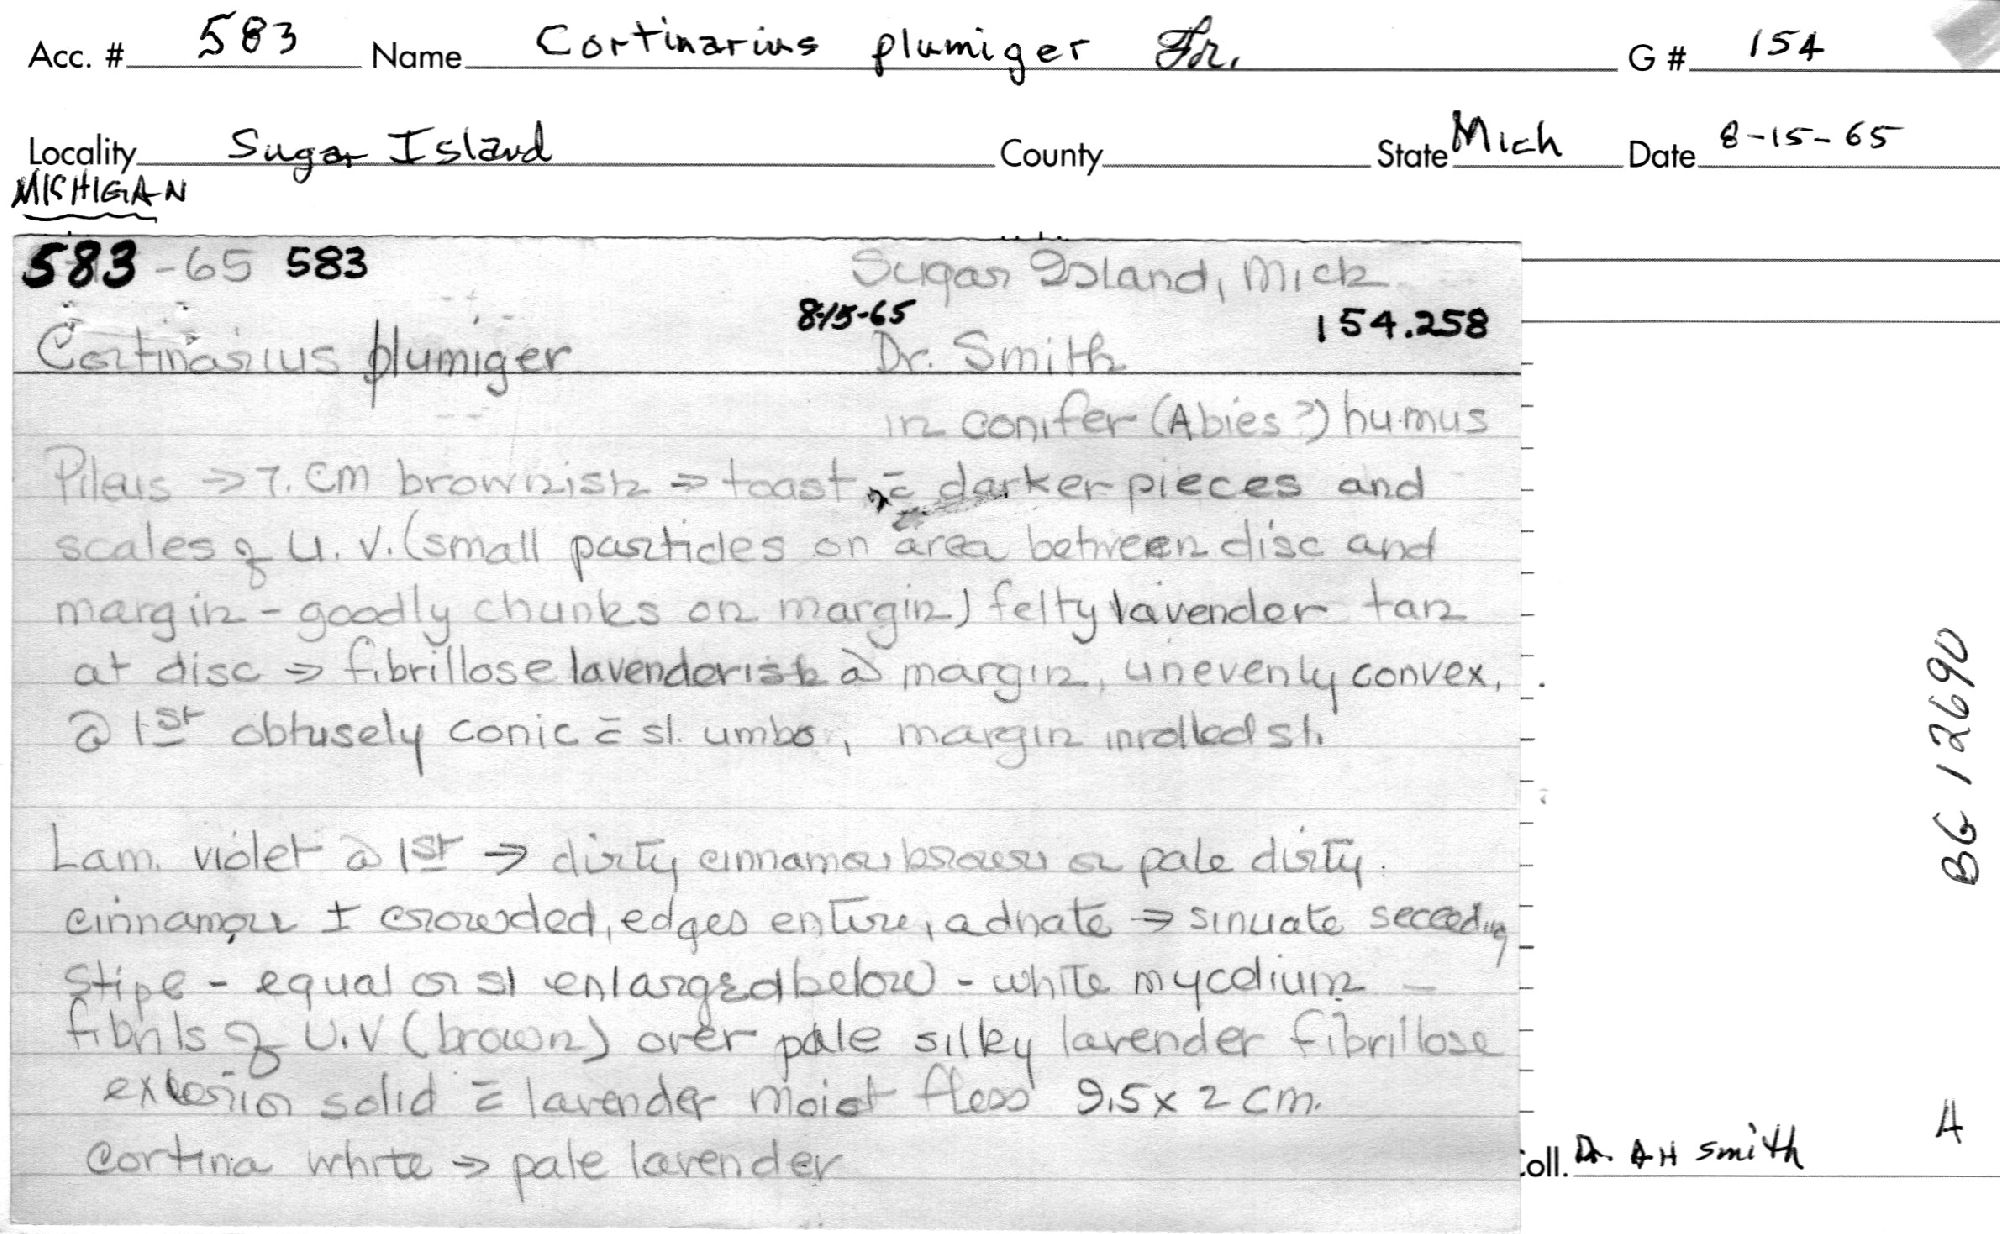 Acc. # 583 Name Cortinarius plumiger Fr. G # 154
Locality Sugar Island County State Mich Date 8-15-65
MICHIGAN
583-65 583 Sugar Island, Mich
8-15-65 154.258
Cortinarius plumiger Dr. Smith
in conifer (Abies?) humus
Pileus → 7. cm brownish → toast c̄ darker pieces and
scales of U.V. (small particles on area between disc and
margin - goodly chunks on margin) felty lavender tan
at disc → fibrillose lavenderish @ margin, unevenly convex,
@ 1st obtusely conic c̄ sl. umbo, margin inrolled sl.
Lam. violet @ 1st → dirty cinnamon brown or pale dirty
cinnamon ± crowded, edges entire, adnate → sinuate seceeding
Stipe - equal or sl enlarged below - white mycelium -
fibrils of U.V (brown) over pale silky lavender fibrillose
exterior solid c̄ lavender moist flesh 9.5 x 2 cm.
Cortina white → pale lavender
BG 12690
A
oll. Dr. AH Smith